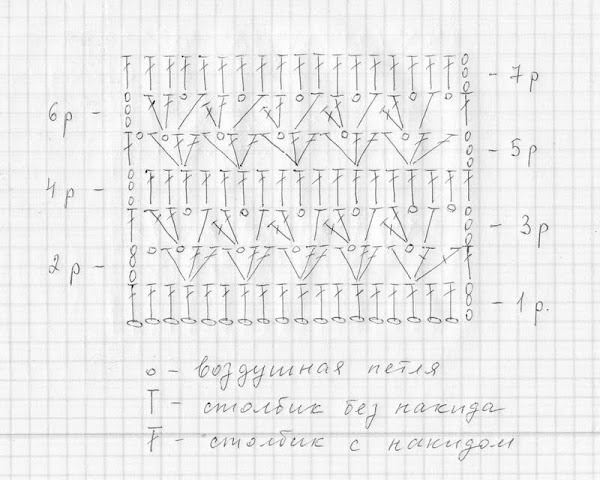 - 7р
6р -
- 5р
4р -
- 3р
2р -
- 1р.
о - воздушная петля
Т - столбик без накида
Ŧ - столбик с накидом